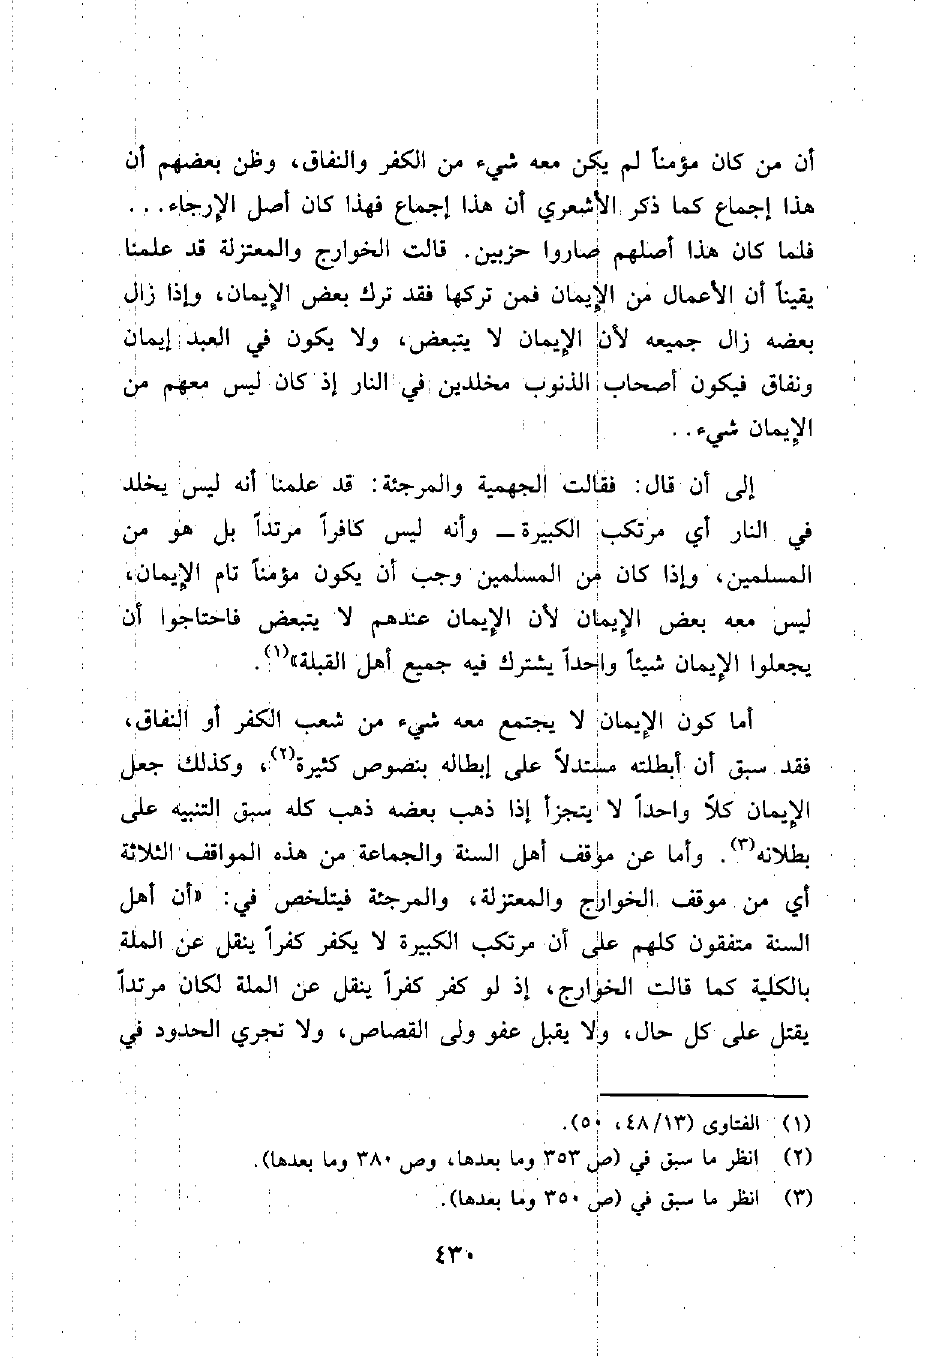 أن من كان مؤمناً لم يكن معه شيء من الكفر والنفاق، وظن بعضهم أن
هذا إجماع كما ذكر الأشعري أن هذا إجماع فهذا كان أصل الإرجاء...
فلما كان هذا أصلهم صاروا حزبين. قالت الخوارج والمعتزلة قد علمنا
يقيناً أن الأعمال من الإيمان فمن تركها فقد ترك بعض الإيمان، وإذا زال
بعضه زال جميعه لأن الإيمان لا يتبعض، ولا يكون في العبد إيمان
ونفاق فيكون أصحاب الذنوب مخلدين في النار إذ كان ليس معهم من
الإيمان شيء..
إلى أن قال: فقالت الجهمية والمرجئة: قد علمنا أنه ليس يخلد
في النار أي مرتكب الكبيرة ـ وأنه ليس كافراً مرتداً بل هو من
المسلمين، وإذا كان من المسلمين وجب أن يكون مؤمناً تام الإيمان،
ليس معه بعض الإيمان لأن الإيمان عندهم لا يتبعض فاحتاجوا أن
يجعلوا الإيمان شيئاً واحداً يشترك فيه جميع أهل القبلة»(١).
أما كون الإيمان لا يجتمع معه شيء من شعب الكفر أو النفاق،
فقد سبق أن أبطلته مستدلاً على إبطاله بنصوص كثيرة(٢)، وكذلك جعل
الإيمان كلاً واحداً لا يتجزأ إذا ذهب بعضه ذهب كله سبق التنبيه على
بطلانه(٣). وأما عن موقف أهل السنة والجماعة من هذه المواقف الثلاثة
أي من موقف الخوارج والمعتزلة، والمرجئة فيتلخص في: «أن أهل
السنة متفقون كلهم على أن مرتكب الكبيرة لا يكفر كفراً ينقل عن الملة
بالكلية كما قالت الخوارج، إذ لو كفر كفراً ينقل عن الملة لكان مرتداً
يقتل على كل حال، ولا يقبل عفو ولى القصاص، ولا تجري الحدود في
(١) الفتاوى (٤٨/١٣، ٥٠).
(٢) انظر ما سبق في (ص ٣٥٣ وما بعدها، وص ٣٨٠ وما بعدها).
(٣) انظر ما سبق في (ص ٣٥٠ وما بعدها).
٤٣٠